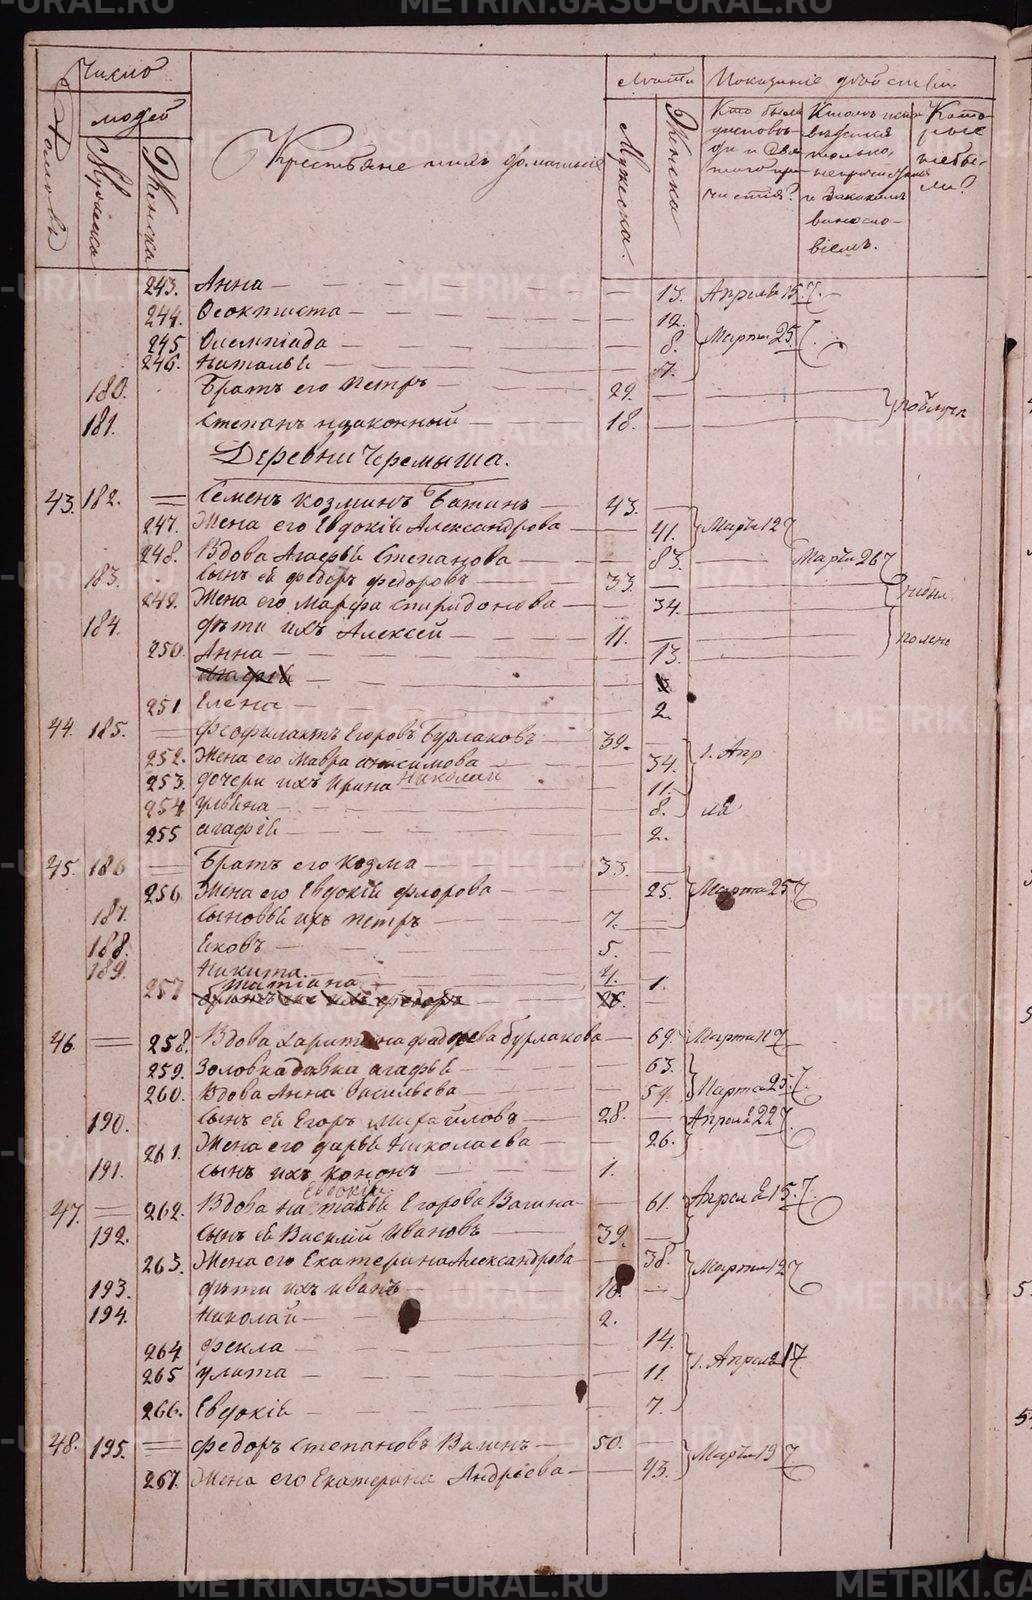 Число
людей
Домовъ
Мужска
Женска
Крестьяне и ихъ домашніе
Лѣта
Мужеска.
Женска
Показаніе дѣйствія
Кто были
у исповѣ-
ди и свя-
таго при-
частія?
Кто
исповѣдался
только,
не причастился
и за какимъ
винословіемъ.
Кото-
рые
не бы-
ли?
243. Анна — 13. Апреля 15
244. Ѳеоктиста — 12.
245 Олемпіада — 8. Марта 25
246. Наталья — 7.
180. Братъ его Петръ — 29.
181. Степанъ незаконный — 18.
Деревни Черемыша.
43. 182. Семенъ Козминъ Вагинъ — 43.
247. Жена его Евдокія Александрова — 41. Марта 12
248. Вдова Агафья Степанова — 83. Марта 26
183. Сынъ ея Федоръ Федоровъ — 33.
249. Жена его Марфа Спиридонова — 34.
184. Дѣти ихъ Алексей — 11.
250. Анна — 13.
Агафія
251 Елена — 2.
44. 185. Феофилактъ Егоровъ Бурлаковъ — 39.
252. Жена его Мавра Анисимова — 34. Апр
Николай
253. дочери ихъ Ирина — 11.
254 Ульяна — 8. ля
255 Агафія — 2.
45. 186 Братъ его Козма — 33.
256 Жена его Евдокія Флорова — 25. Марта 25
187. Сыновья ихъ Петръ — 7.
188. Яковъ — 5.
189. Никита — 4.
257 Татіана — 1.
46 258. Вдова Харитина Фадѣева Бурлакова — 69. Марта
259. Золовка девка Агафья — 63.
260. Вдова Анна Васильева — 59. Марта 25.
190. Сынъ ея Егоръ Михайловъ — 28. Апреля 22
261. Жена его Дарья Николаева — 26.
191. Сынъ ихъ Кононъ — 1.
Евдокія
47. 262. Вдова Наталья Егорова Вагина — 61. Апреля 15.
192. Сынъ ея Василій Ивановъ — 39.
263. Жена его Екатерина Александрова — 38. Марта 12
193. Дѣти ихъ Иванъ — 16.
194. Николай — 2.
264 Фекла — 14.
265 Улита — 11. Апреля 17
266. Евдокія — 7.
48. 195. Федоръ Степановъ Вагинъ — 50.
267. Жена его Екатерина Андреева — 43. Марта 19
METRIKI.GASO-URAL.RU